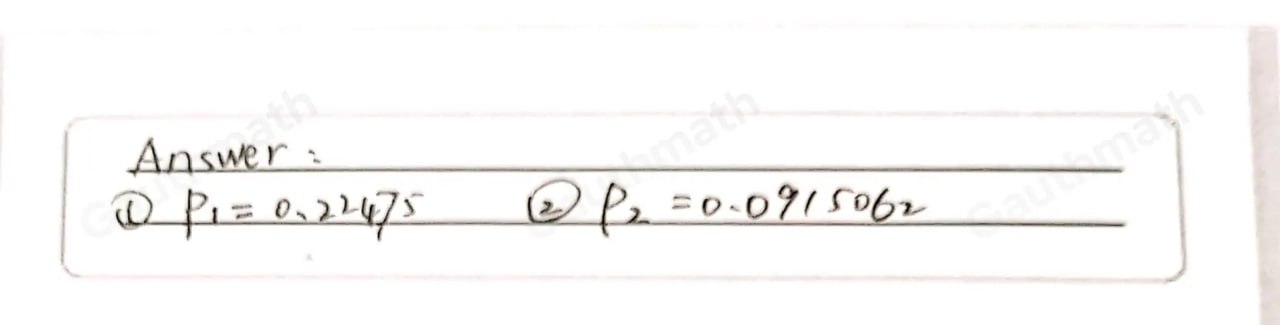 Answer:
① P₁ = 0.22475 ② P₂ = 0.0915062
Gauthmath Gauthmath Gauthmath